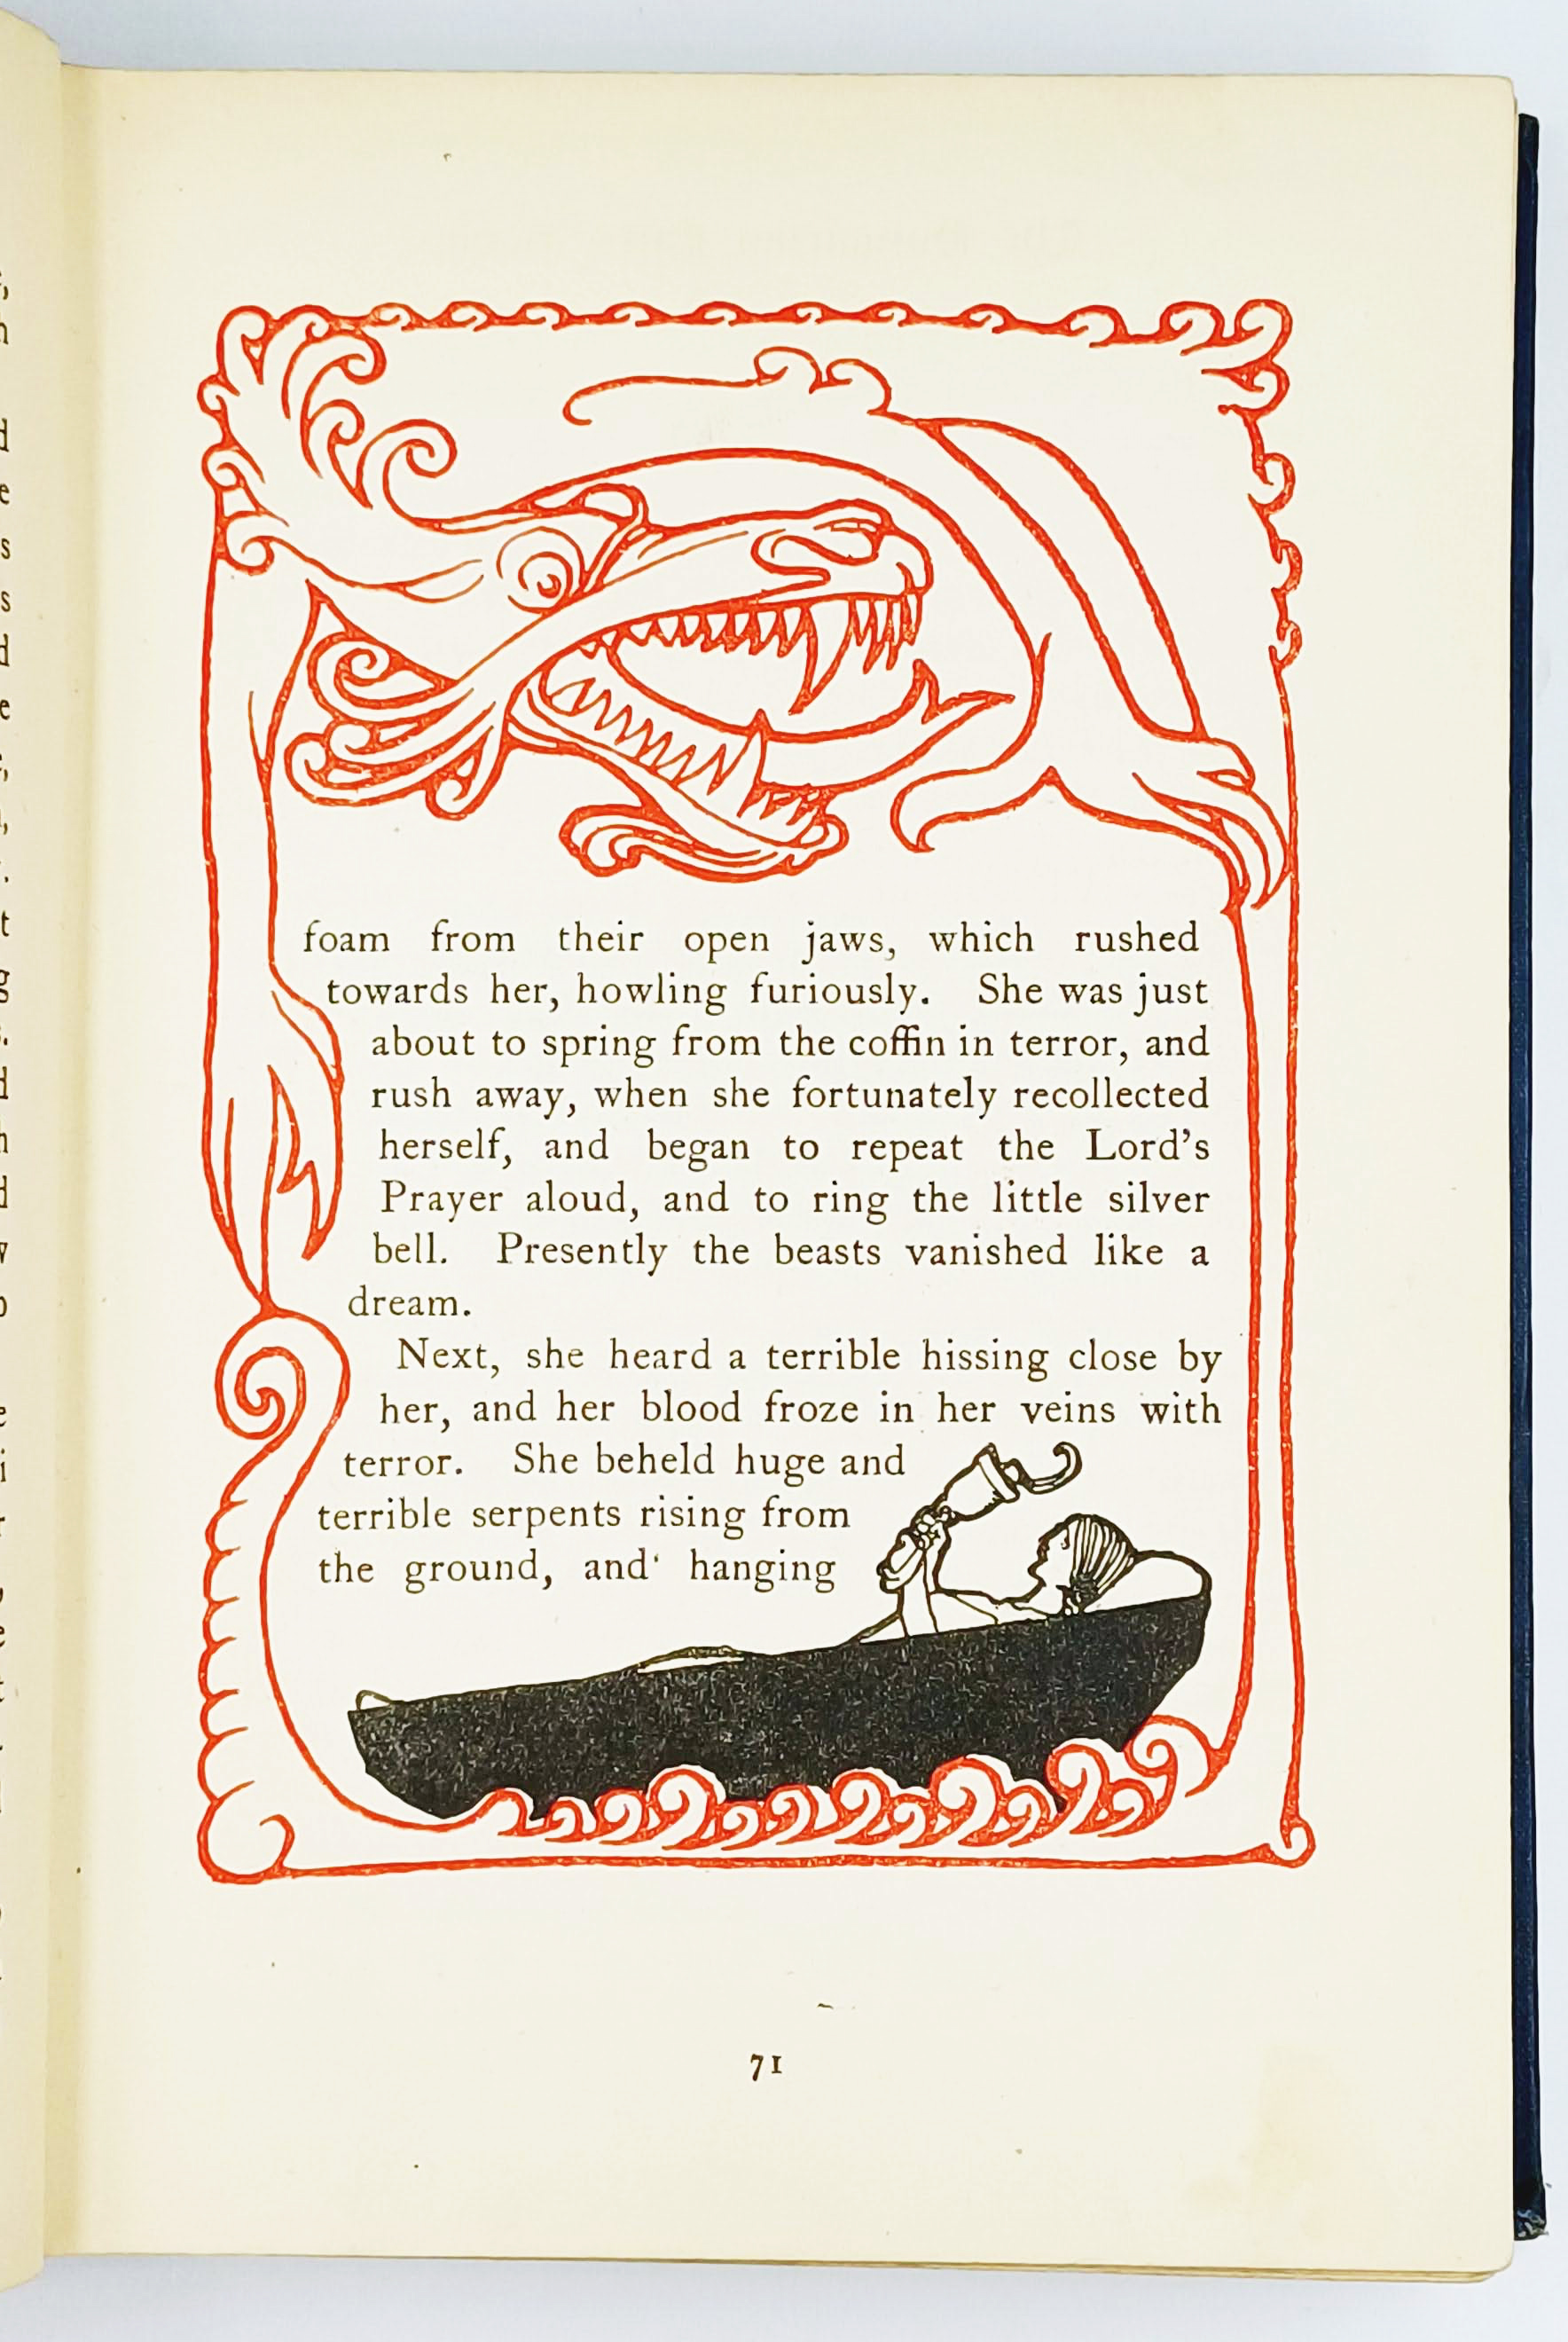 foam from their open jaws, which rushed
towards her, howling furiously. She was just
about to spring from the coffin in terror, and
rush away, when she fortunately recollected
herself, and began to repeat the Lord's
Prayer aloud, and to ring the little silver
bell. Presently the beasts vanished like a
dream.
Next, she heard a terrible hissing close by
her, and her blood froze in her veins with
terror. She beheld huge and
terrible serpents rising from
the ground, and hanging
71